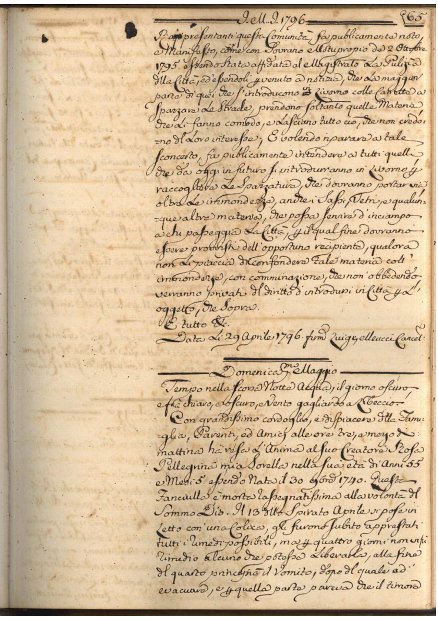 Dell' 1796 65
Rappresentanti questa Comunità, fa publicamente noto,
e Manifesto, come con Sovrano Motupropio de 2 Ottobre
1795 essendo stata affidata al Magistrato La Pulizia
della Città, ed essendoli venuto a notizia, che La maggior
parte di quei, che s'introducono in Livorno colle Carrette a
spazzare Le Strade, prendono soltanto quelle Materie
che Le fanno comodo, e Lasciano tutto ciò, che non credo-
no del Loro interesse; E volendo riparare a tale
sconcerto, fa publicamente intendere a tutti quelli
che da oggi in futuro si introdurranno in Livorno per
raccogliere Le Spazzature, che dovranno portar via
oltre Le immondezze, anche i Sassi, Vetri, e qualun-
que altra materia, che possa servire d'inciampo
a chi passeggia La Città, per il qual fine dovranno
essere provvisti dell'opportuno recipiente, qualora
non Le piaccia di confondere tale materia coll'
immondezze, con comminazione, che non obbedendo
verranno privati del diritto d'introdursi in Città per L'
oggetto, che sopra.
E tutto &c.
Data Li 29 Aprile 1796 firmo Luigi Cancel.
Domenica Pmo Maggio
Tempo nella scorsa Notte Acqua, il giorno oscuro
e fra chiaro, e oscuro, e Vento gagliardo a Libeccio
Con grandissimo cordoglio, e dispiacere della Fami-
glia, Parenti, ed Amici alle ore tre, e mezzo di
mattina ha resa L'Anima al suo Creatore Rosa
Pellegrina mia Sorella nella sua età di Anni 55
e Mesi 5 essendo Nata il 30 1740. Questa
Fanciulla è morta rassegnatissima alla volontà del
Sommo Dio. Il 13 dello Spirato Aprile si pose in
Letto con una Colica, gli furono subito apprestati
tutti i rimedi possibili, ma per quattro giorni non vi fu
rimedio alcuno che potesse Liberarla, alla fine
del quarto principiò il Vomito, dopo del quale ad
evacuare, e per quella parte pareva che il timore